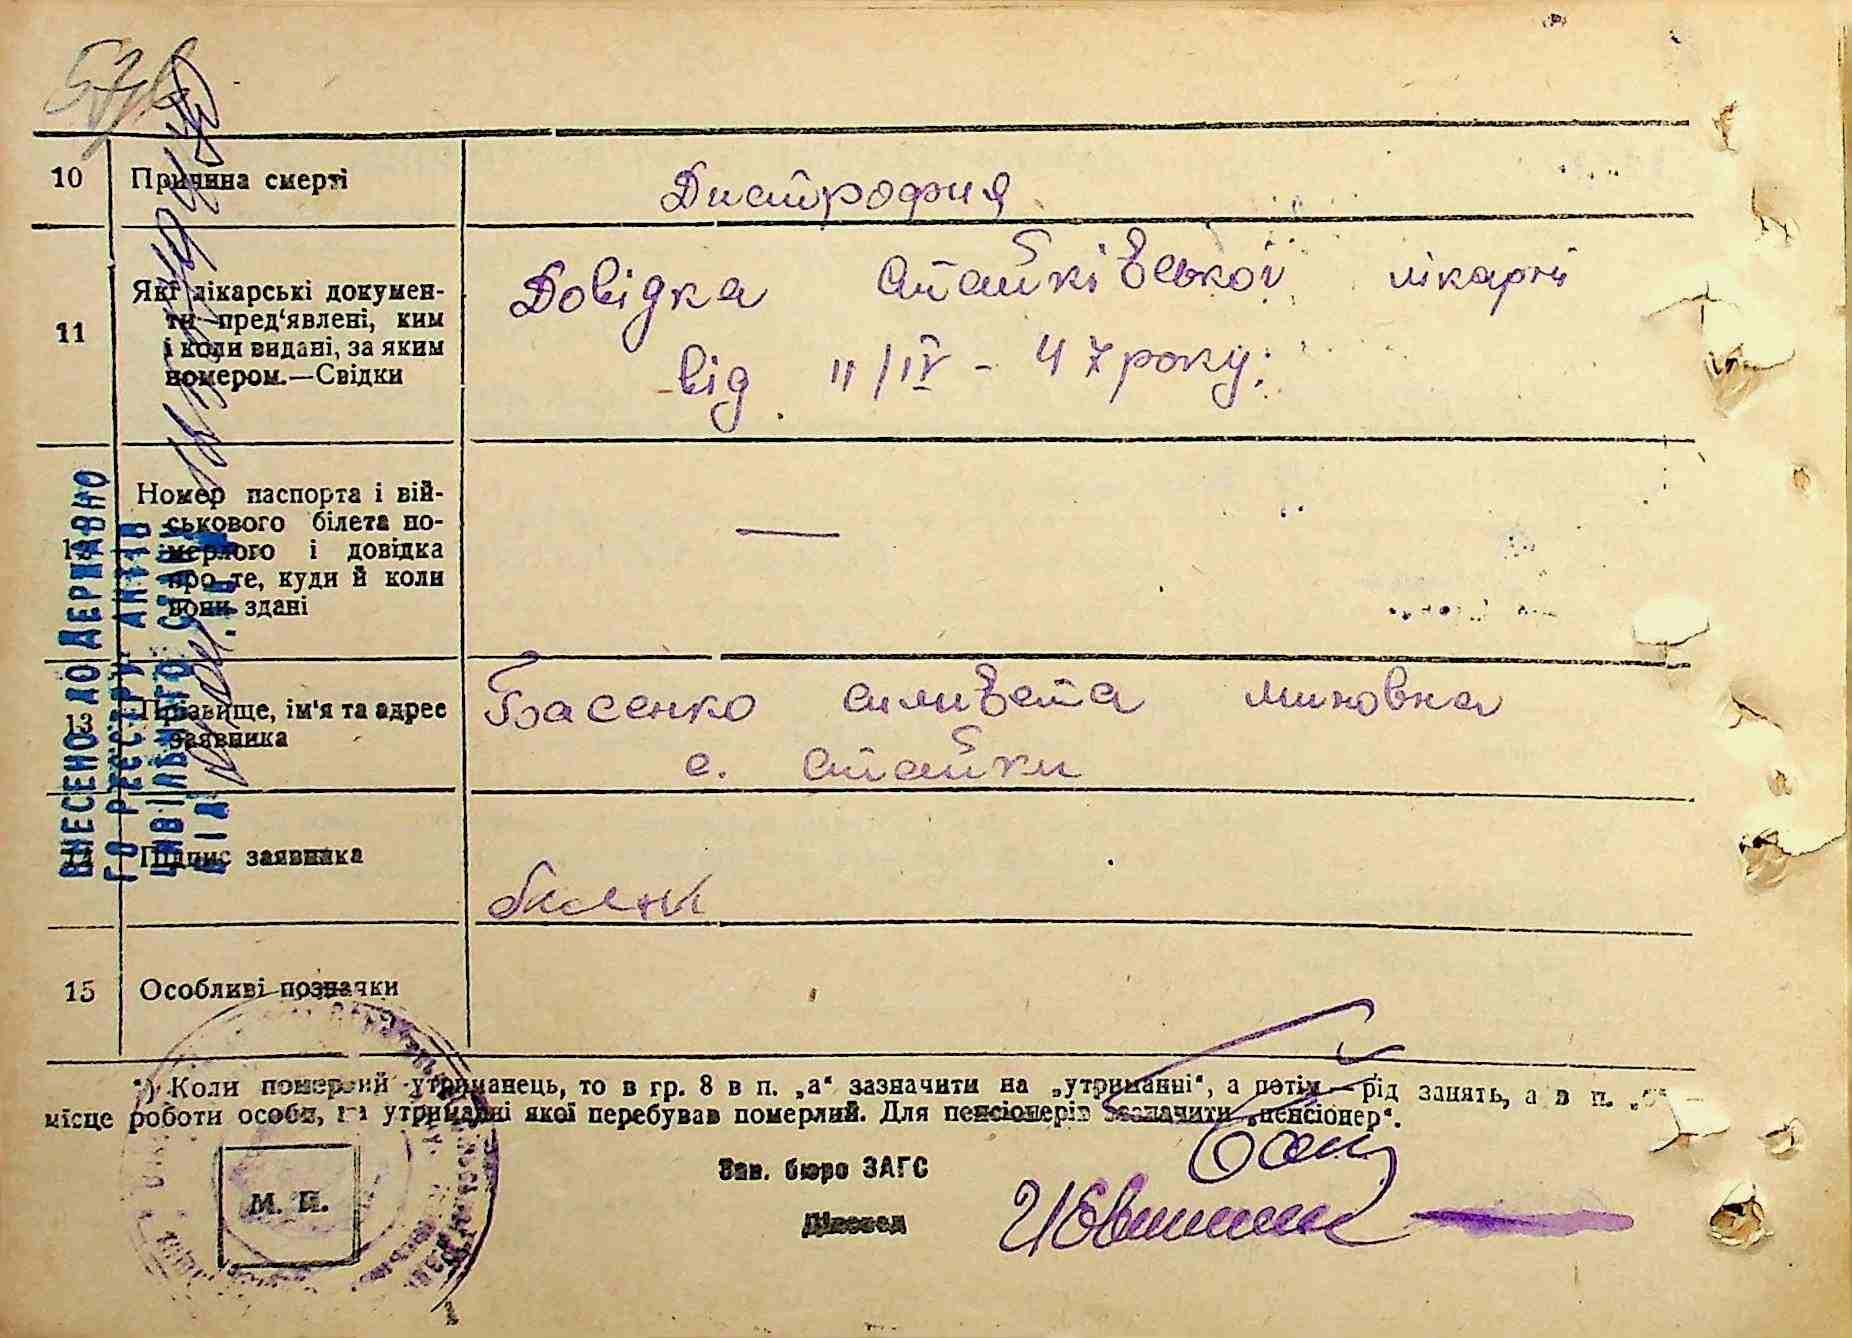 10 Причина смерті Дистрофия
11 Які лікарські докумен-
ти пред'явлені, ким
і коли видані, за яким
номером.—Свідки
Довідка Стайківської лікарні
від 11/IV - 47 року.
12 Номер паспорта і вій-
ськового білета по-
мерлого і довідка
про те, куди й коли
вони здані
—
13 Прізвище, ім'я та адрес
заявника
Басенко Миновна
с. Стайки
14 Підпис заявника
15 Особливі позначки
ВНЕСЕНО ДО ДЕРЖАВНО
ГО РЕЄСТРУ АКТІВ
ЦИВІЛЬНОГО СТАНУ
*) Коли померлий утриманець, то в гр. 8 в п. „а“ зазначити на „утриманні“, а потім — рід занять, а в п. „б“
місце роботи особи, на утриманні якої перебував померлий. Для пенсіонерів зазначити „пенсіонер“.
Зав. бюро ЗАГС
М. П.
Діловод